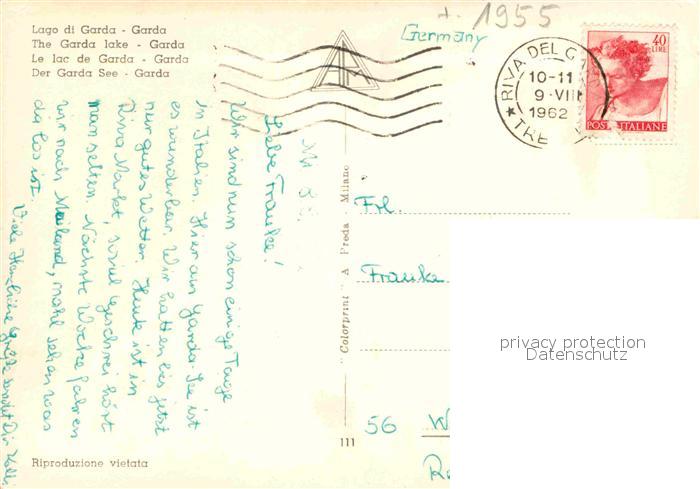 Lago di Garda - Garda
The Garda lake - Garda
Le lac de Garda - Garda
Der Garda See - Garda
+ 1955
Germany
RIVA DEL
10-11
9-VIII
1962
TRE
40
LIRE
POSTE ITALIANE
Liebe Frauke!
Wir sind nun schon einige Tage
in Italien. Hier am Garda-See ist
es wunderbar. Wir hatten bis jetzt
nur gutes Wetter. Heute ist in
Riva Markt, soviel Geschrei hört
man selten. Nächste Woche fahren
wir nach Mailand, mahl sehen was
da los ist.
Viele Grüße sendet Dir
Colorprint A Preda - Milano
Frl.
Frauke
56 W
R
privacy protection
Datenschutz
111
Riproduzione vietata